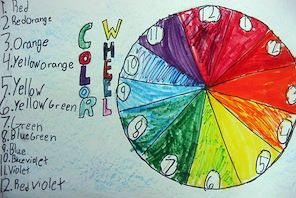 1. Red
2. Red orange
3. Orange
4. Yellow orange
5. Yellow
6. Yellow Green
7. Green
8. Blue Green
9. Blue
10. Blue violet
11. Violet
12. Red violet
COLOR
WHEEL